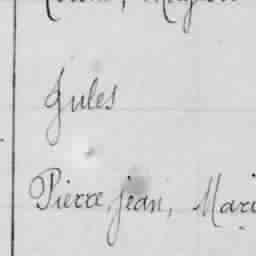 Jules
Pierre, Jean, Mari